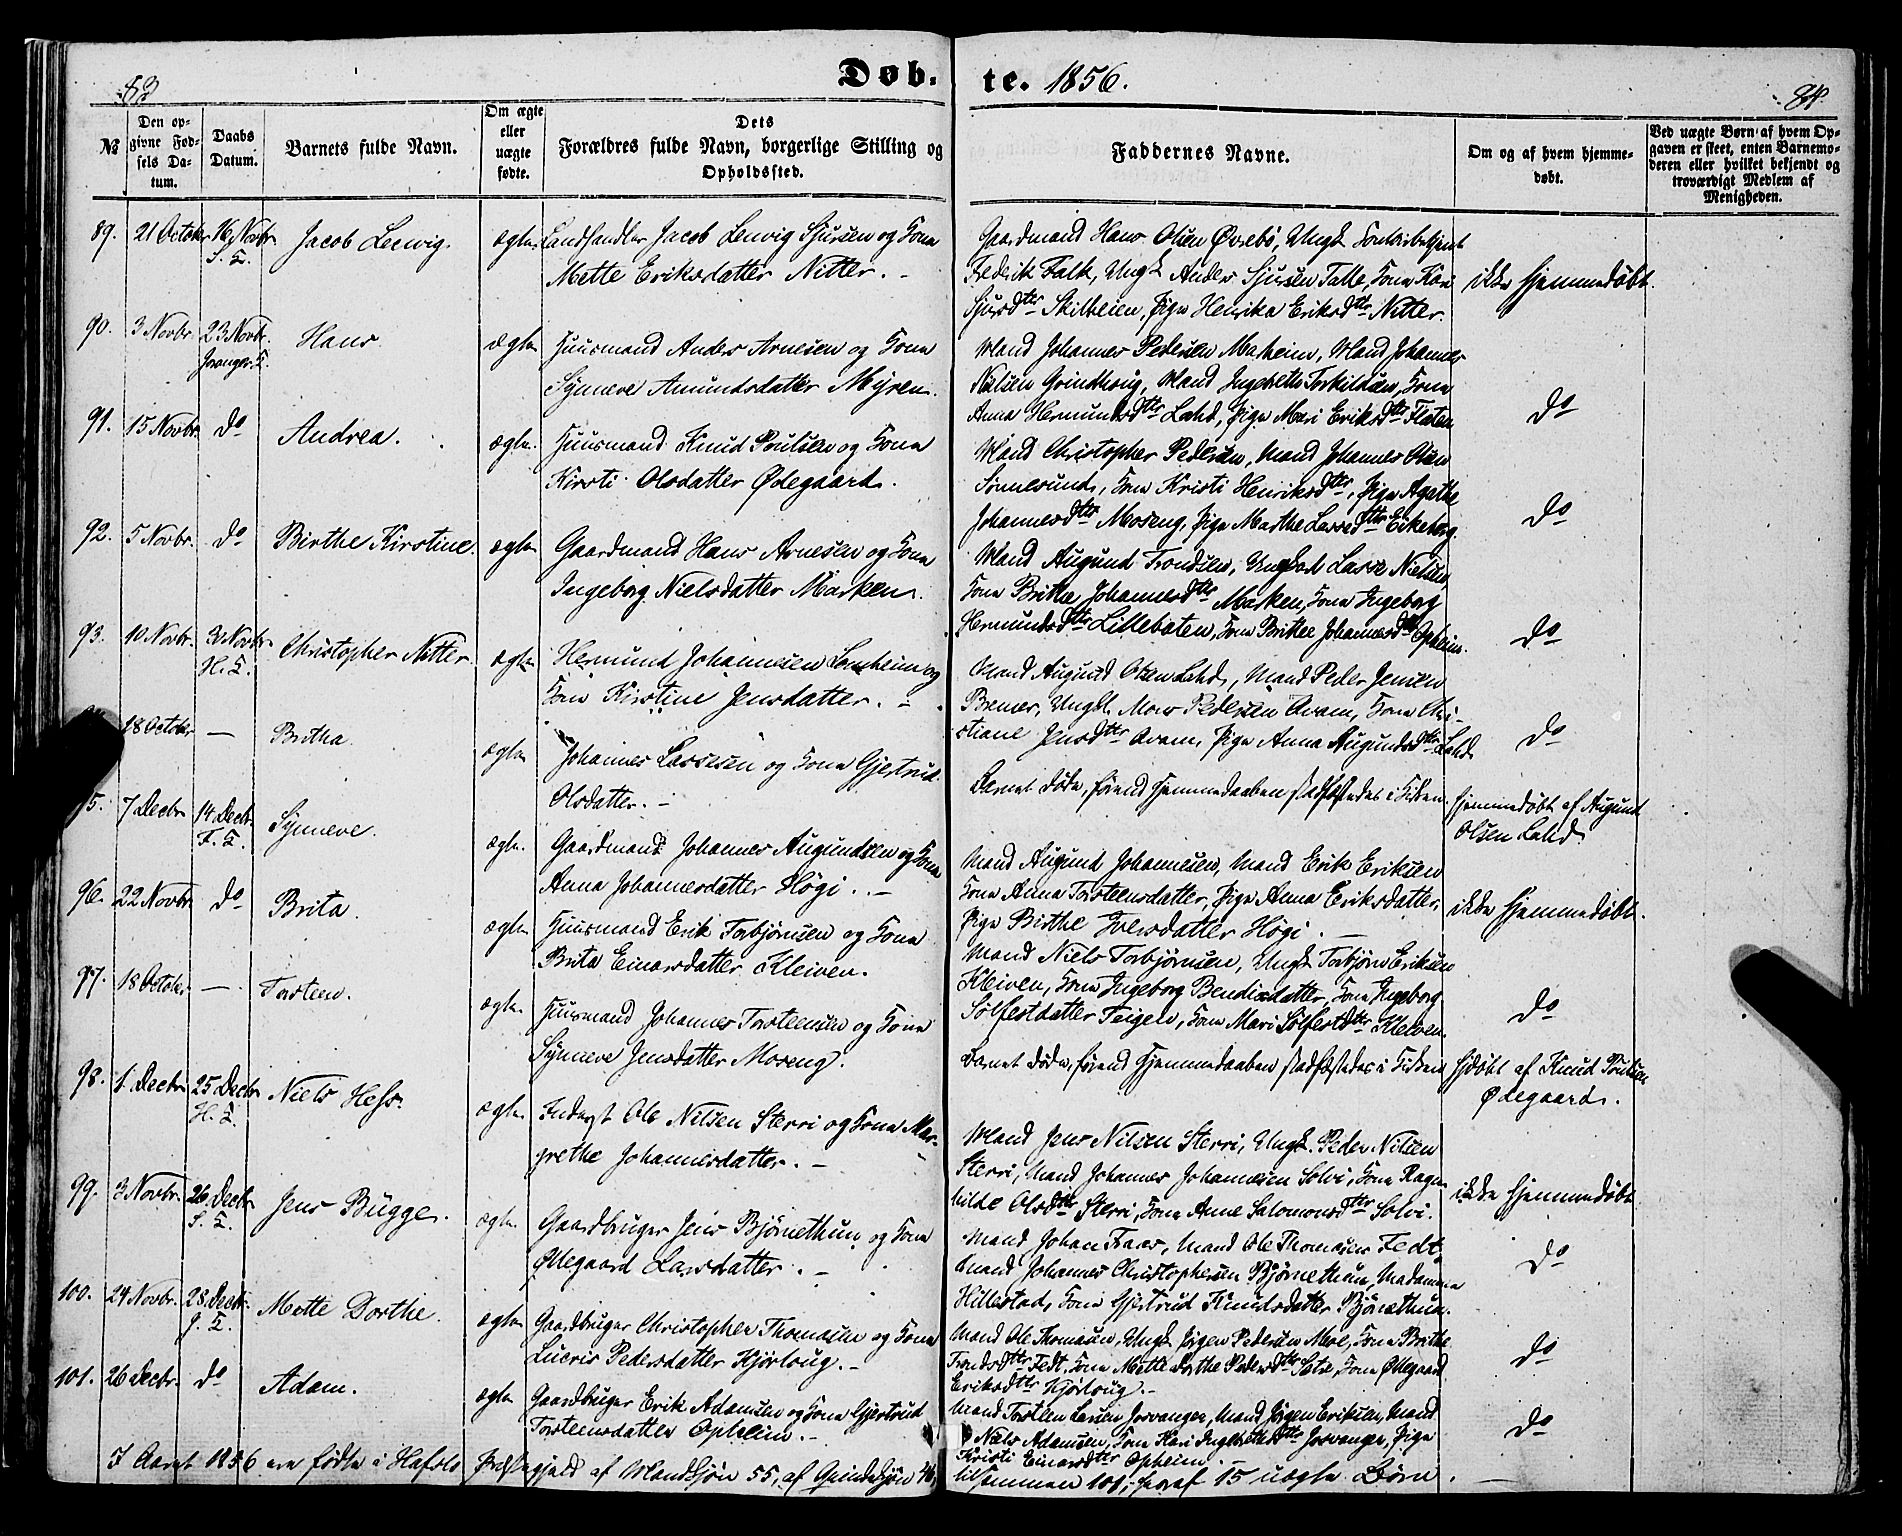 83
Døb-
te. 1856.
84.
№
Den op-
givne Fød-
sels Da-
tum.
Daabs
Datum.
Barnets fulde Navn.
Om ægte
eller
uægte
fødte.
Dets
Forældres fulde Navn, borgerlige Stilling og
Opholdssted.
Faddernes Navne.
Om og af hvem hjemme-
døbt.
Ved uægte Børn af hvem Op-
gaven er skeet, enten Barnemo-
deren eller hvilket bekjendt og
troværdigt Medlem af
Menigheden.
89. 21 Octobr 16 Novbr. Jacob Lervig. ægte Landhandler Jacob Lervig Sjursen og Kone
S. K.
Mette Eriksdatter Nitter. -
Gaardmand Hans Olsen Øvrebø, Ungk.
Frederik Falk, Ungk Anders Sjursen Talle, Kone Kari
Sjursdtr Skilheien, Pige Henrika Eriksdtr Nitter.
ikke hjemmedøbt.
90. 3 Novbr. 23 Novbr. Hans ægte Huusmand Anders Arnesen og Kone
Joranger K.
Synneve Amundsdatter Myren.
Mand Johannes Pedersen Marheim, Mand Johannes
Nielsen Grindhoug, Mand Ingebreth Torkildsen, Kone
Anna Hermundsdtr Lahd, Pige Mari Eriksdtr Flaten
do
91. 15 Novbr. do Andrea. ægte. Huusmand Knud Poulsen og Kone
Kirsti Olsdatter Ødegaard.
Mand Christopher Pedersen, Mand Johannes Olsen
Sønnesund, Kone Kristi Henriksdtr, Pige Agathe
Johannesdtr Moseng, Pige Marthe Lassedtr Eikeberg.
do
92. 5 Novbr. do Birthe Kirstine. ægte Gaardmand Hans Arnesen og Kone
Ingeborg Nielsdatter Marken.
Mand Augund Trondsen, Ungkarl Lasse Nielsen,
Kone Brithe Johannesdtr Marken, Kone Ingeborg
Hermundsdtr Lillebøten, Kone Brithe Johannesdtr Opheim.
do
93. 10 Novbr. 30 Novbr Christopher Nitter. ægte Hermund Johannesen Lomheim og
H. K.
Kone Kirstine Jensdatter. -
Mand Augund Olsen Lahd, Mand Peder Jensen
Bremer, Ungk. Mons Pedersen Kvam, Kone Chri-
stiane Jensdtr Kvam, Pige Anna Augundsdtr Lahd
do
18 October — Britha. ægte Johannes Lassesen og Kone Gjertrud
Olsdatter. -
Barnet døde, førend Hjemmedaaben stadfæstedes i Kirken.
Hjemmedøbt af Augund
Olsen Lahd.
95. 7 Decbr 14 Decbr Synneve. ægte. Gaardmand Johannes Augundsen og Kone
F. K.
Anna Johannesdatter Høgi. -
Mand Augund Johannesen, Mand Erik Eriksen
Kone Anna Torsteensdatter, Pige Anna Eriksdatter,
Pige Birthe Iversdatter Høgi. —
ikke hjemmedøbt.
96. 22 Novbr. do Brita. ægte Huusmand Erik Torbjørnsen og Kone
Brita Einarsdatter Kleiven.
Mand Niels Torbjørnsen, Ungk. Torbjørn Eriksen
Kleiven, Kone Ingeborg Bendixdatter, Kone Ingeborg
Sølfestdatter Feigen, Kone Mari Sølfestdtr Kleiven.
do
97. 18 October. — Torsteen. ægte. Huusmand Johannes Torsteensen og Kone
Synneve Jensdatter Moseng.
Barnet døde, førend Hjemmedaaben stadfæstedes i Kirken
Hjdøbt af Knud Poulsen
Ødegaard.
98. 1. Decbr 25 Decbr Niels Hess. ægte Inderst Ole Nilsen Sterri og Kone Mar-
H. K.
grethe Johannesdatter. -
Mand Jens Nilsen Sterri, Ungk. Peder Nilsen
Sterri, Mand Johannes Johannesen Solvi, Kone Ragn-
hilde Olsdtr Sterri, Kone Anne Salomonsdtr Solvi.
ikke hjemmedøbt
99. 3 Novbr. 26 Decbr Jens Bügge. ægte Gaardbruger Jens Bjørnethun og Kone
S. K.
Ødegaard Larsdatter. -
Mand Johan Faaer, Mand Ole Thomasen Fedt,
Mand Johannes Christophersen Bjørnethun, Madamme
Hillestad, Kone Gjertrud Knudsdatter Bjørnethun.
do
100. 24 Novbr. 28 Decbr. Mette Dorthe. ægte Gaardbruger Christopher Thomasen og Kone
J. K.
Lucris Pedersdatter Kjørloug. -
Mand Ole Thomasen, Ungk. Jørgen Pedersen Moe, Kone Brithe
Trondsdtr Fedt, Kone Mette Dorthe Pedersdtr Sæte, Kone Ødegaard
Eriksdtr Kjørloug. -
do
101. 26 Decbr. do Adam. ægte Gaardbruger Erik Adamsen og Kone Gjertrud
Torsteensdatter Opheim. -
Mand Torsteen Larsen Jorvanger, Mand Jørgen Eriksen, Mand
Niels Adamsen, Kone Kari Ingebrethsdtr Jorvanger, Pige
Kristi Einarsdtr Opheim. —
do
I Aaret 1856 ere fødte i Hafslo Præstegjeld af Mandkjøn 55, af Qvindekjøn 46,
tilsammen 101, hvoraf 15 uægte Børn. —